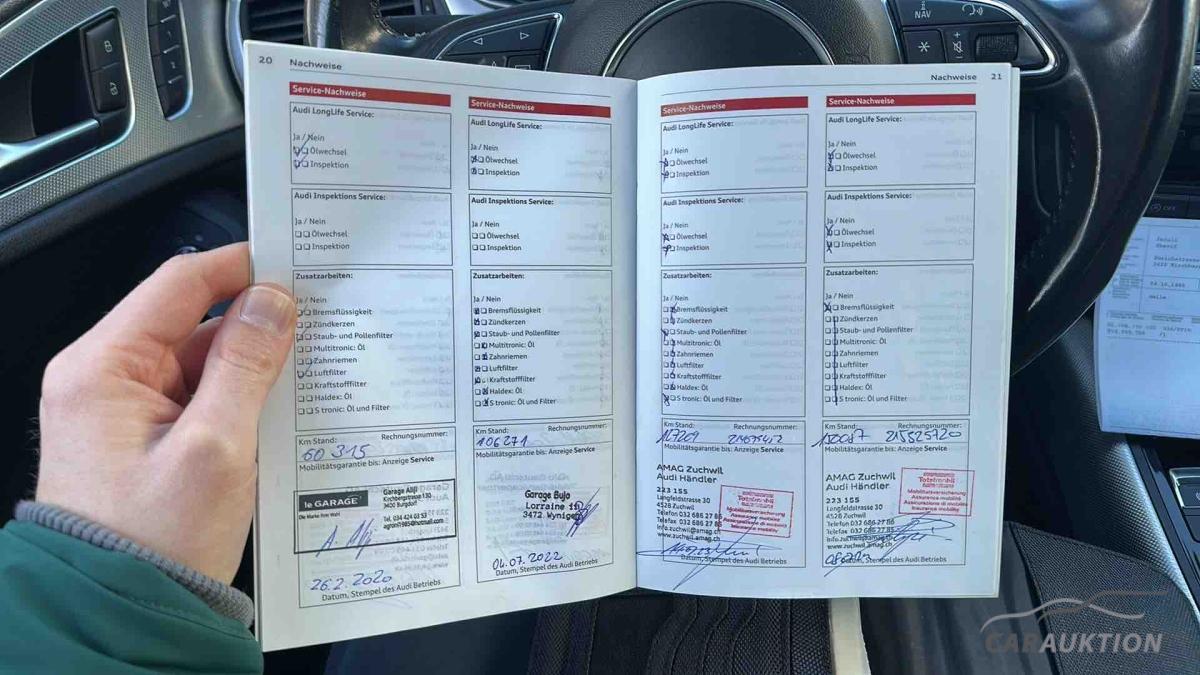 NAV
20
Nachweise
Service-Nachweise
Audi LongLife Service:
Ja / Nein
Ölwechsel
Inspektion
Audi Inspektions Service:
Ja / Nein
Ölwechsel
Inspektion
Zusatzarbeiten:
Ja / Nein
Bremsflüssigkeit
Zündkerzen
Staub- und Pollenfilter
Multitronic: Öl
Zahnriemen
Luftfilter
Kraftstofffilter
Haldex: Öl
S tronic: Öl und Filter
Km Stand: Rechnungsnummer:
60 315
Mobilitätsgarantie bis: Anzeige Service
le GARAGE
Die Marke Ihrer Wahl
Garage Aliji
Kirchbergstrasse 130
3400 Burgdorf
Tel. 034 424 03 53
agroni1985@hotmail.com
26.2.2020
Datum, Stempel des Audi Betriebs
Service-Nachweise
Audi LongLife Service:
Ja / Nein
Ölwechsel
Inspektion
Audi Inspektions Service:
Ja / Nein
Ölwechsel
Inspektion
Zusatzarbeiten:
Ja / Nein
Bremsflüssigkeit
Zündkerzen
Staub- und Pollenfilter
Multitronic: Öl
Zahnriemen
Luftfilter
Kraftstofffilter
Haldex: Öl
S tronic: Öl und Filter
Km Stand: Rechnungsnummer:
106271
Mobilitätsgarantie bis: Anzeige Service
Garage Bujo
Lorraine
3472 Wynigen
04.07.2022
Datum, Stempel des Audi Betriebs
Nachweise 21
Service-Nachweise
Audi LongLife Service:
Ja / Nein
Ölwechsel
Inspektion
Audi Inspektions Service:
Ja / Nein
Ölwechsel
Inspektion
Zusatzarbeiten:
Ja / Nein
Bremsflüssigkeit
Zündkerzen
Staub- und Pollenfilter
Multitronic: Öl
Zahnriemen
Luftfilter
Kraftstofffilter
Haldex: Öl
S tronic: Öl und Filter
Km Stand: Rechnungsnummer:
117209
Mobilitätsgarantie bis: Anzeige Service
AMAG Zuchwil
Audi Händler
223 155
Langfeldstrasse 30
4528 Zuchwil
Telefon 032 686 27 86
Telefax 032 686 27 85
info.zuchwil@amag.ch
www.zuchwil.amag.ch
Totalmobil
Mobilitätsversicherung
Assurance mobilité
Assicurazione di mobilità
Insurance mobility
Datum, Stempel des Audi Betriebs
Service-Nachweise
Audi LongLife Service:
Ja / Nein
Ölwechsel
Inspektion
Audi Inspektions Service:
Ja / Nein
Ölwechsel
Inspektion
Zusatzarbeiten:
Ja / Nein
Bremsflüssigkeit
Zündkerzen
Staub- und Pollenfilter
Multitronic: Öl
Zahnriemen
Luftfilter
Kraftstofffilter
Haldex: Öl
S tronic: Öl und Filter
Km Stand: Rechnungsnummer:
215525720
Mobilitätsgarantie bis: Anzeige Service
AMAG Zuchwil
Audi Händler
223 155
Langfeldstrasse 30
4528 Zuchwil
Telefon 032 686 27 86
Telefax 032 686 27 85
info.zuchwil@amag.ch
www.zuchwil.amag.ch
Totalmobil
Mobilitätsversicherung
Assurance mobilité
Assicurazione di mobilità
Insurance mobility
Datum, Stempel des Audi Betriebs
OFF
CARAUKTION